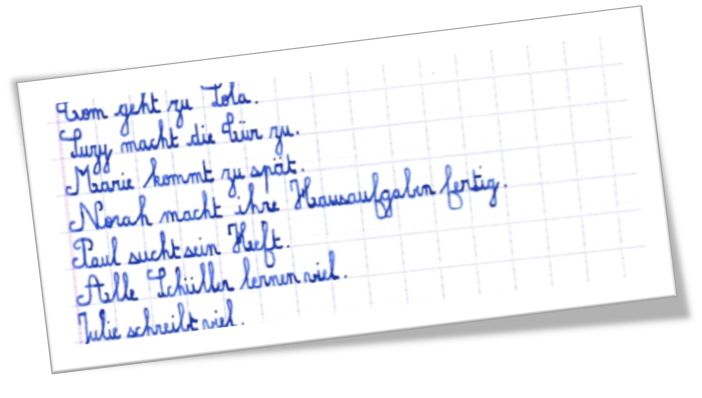 Tom geht zu Lola.
Luzy macht die Tür zu.
Marie kommt zu spät.
Norah macht ihre Hausaufgabn fertig.
Paul sucht sein Heft.
Alle Schüller lernen viel.
Julie schreibt viel.